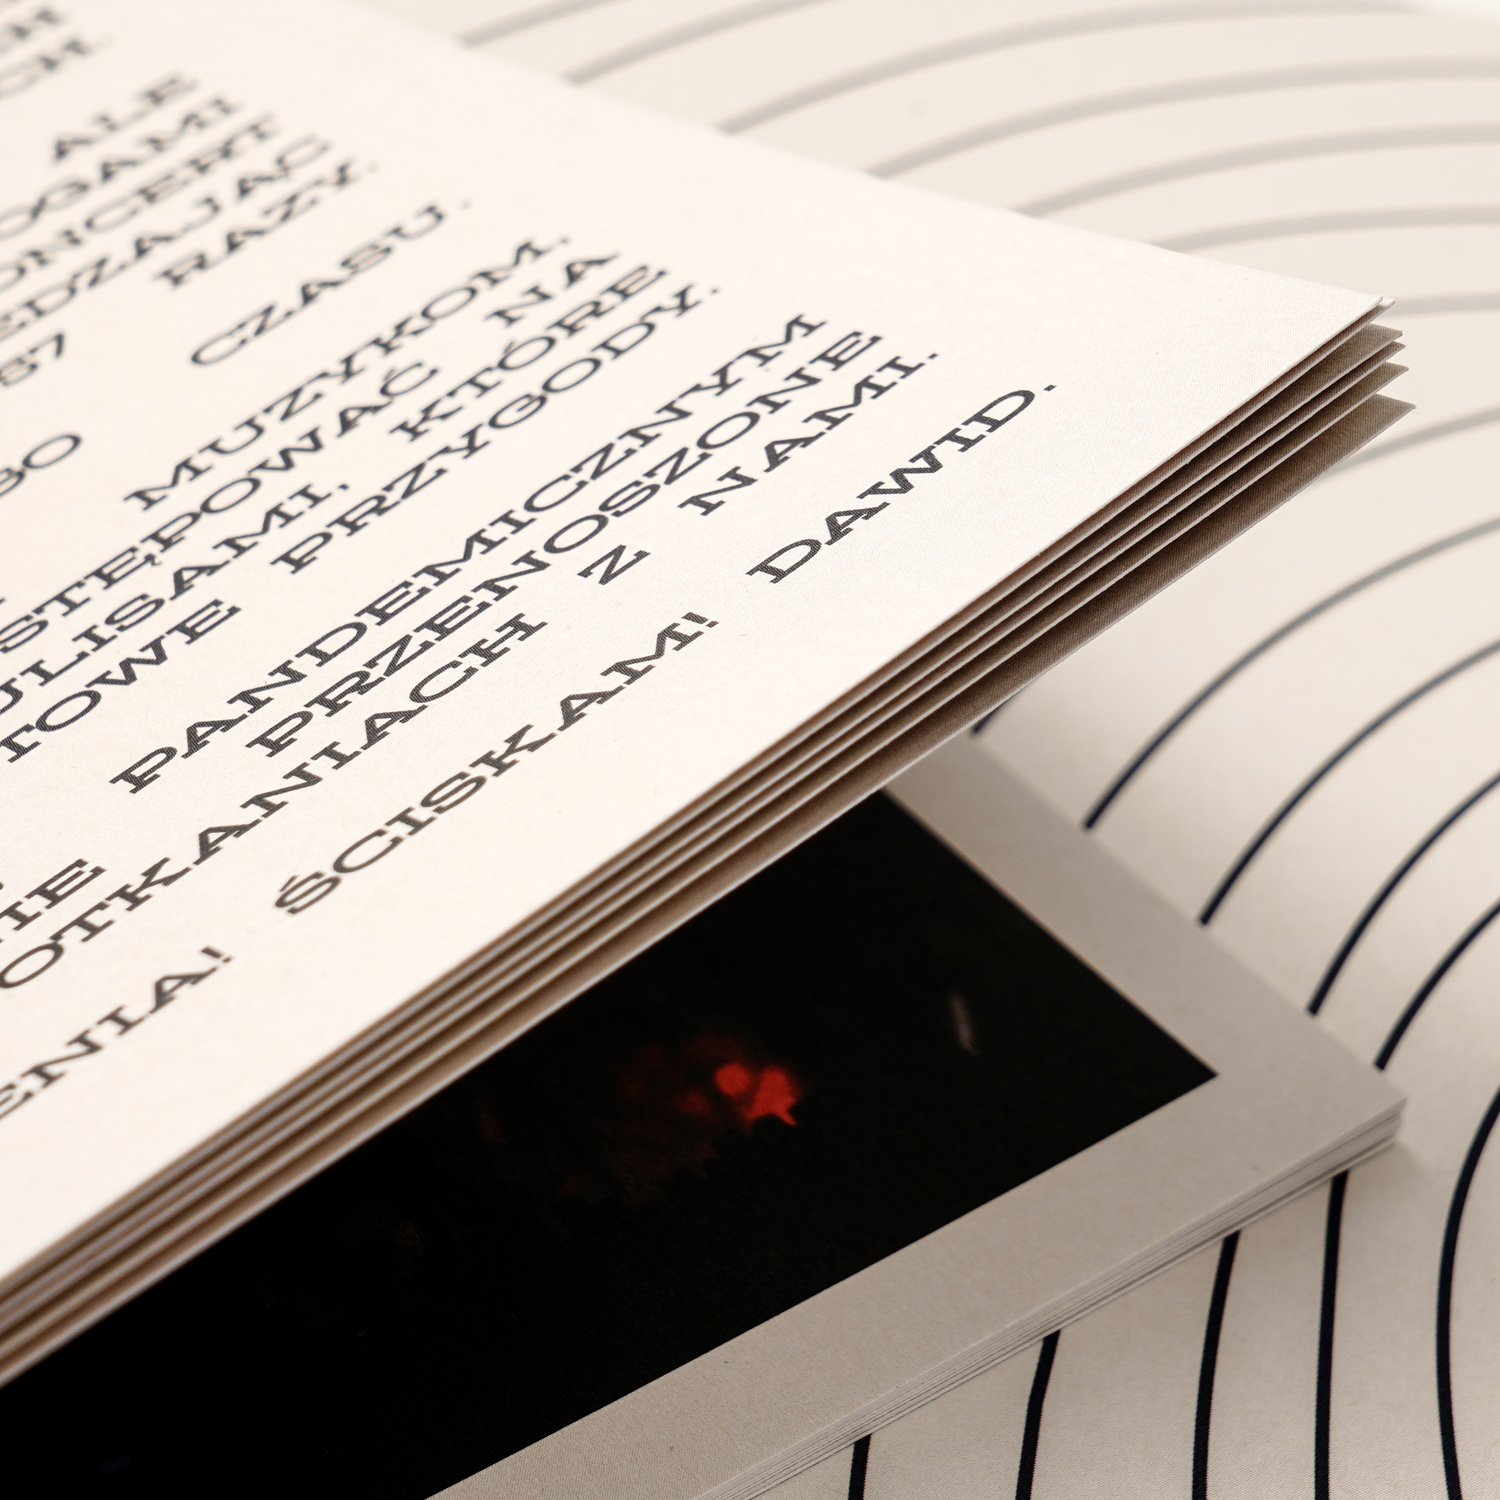 CH.
ALE
OGAMI
ONCERT
EDZAJĄC
87 RAZY.
BO CZASU.
MUZYKOM,
STĘPOWAĆ NA
ULISAMI, KTÓRE
TOWE PRZYGODY.
PANDEMICZNYM
IE PRZENOSZONE
OTKANIACH Z NAMI.
ENIA! ŚCISKAM! DAWID.